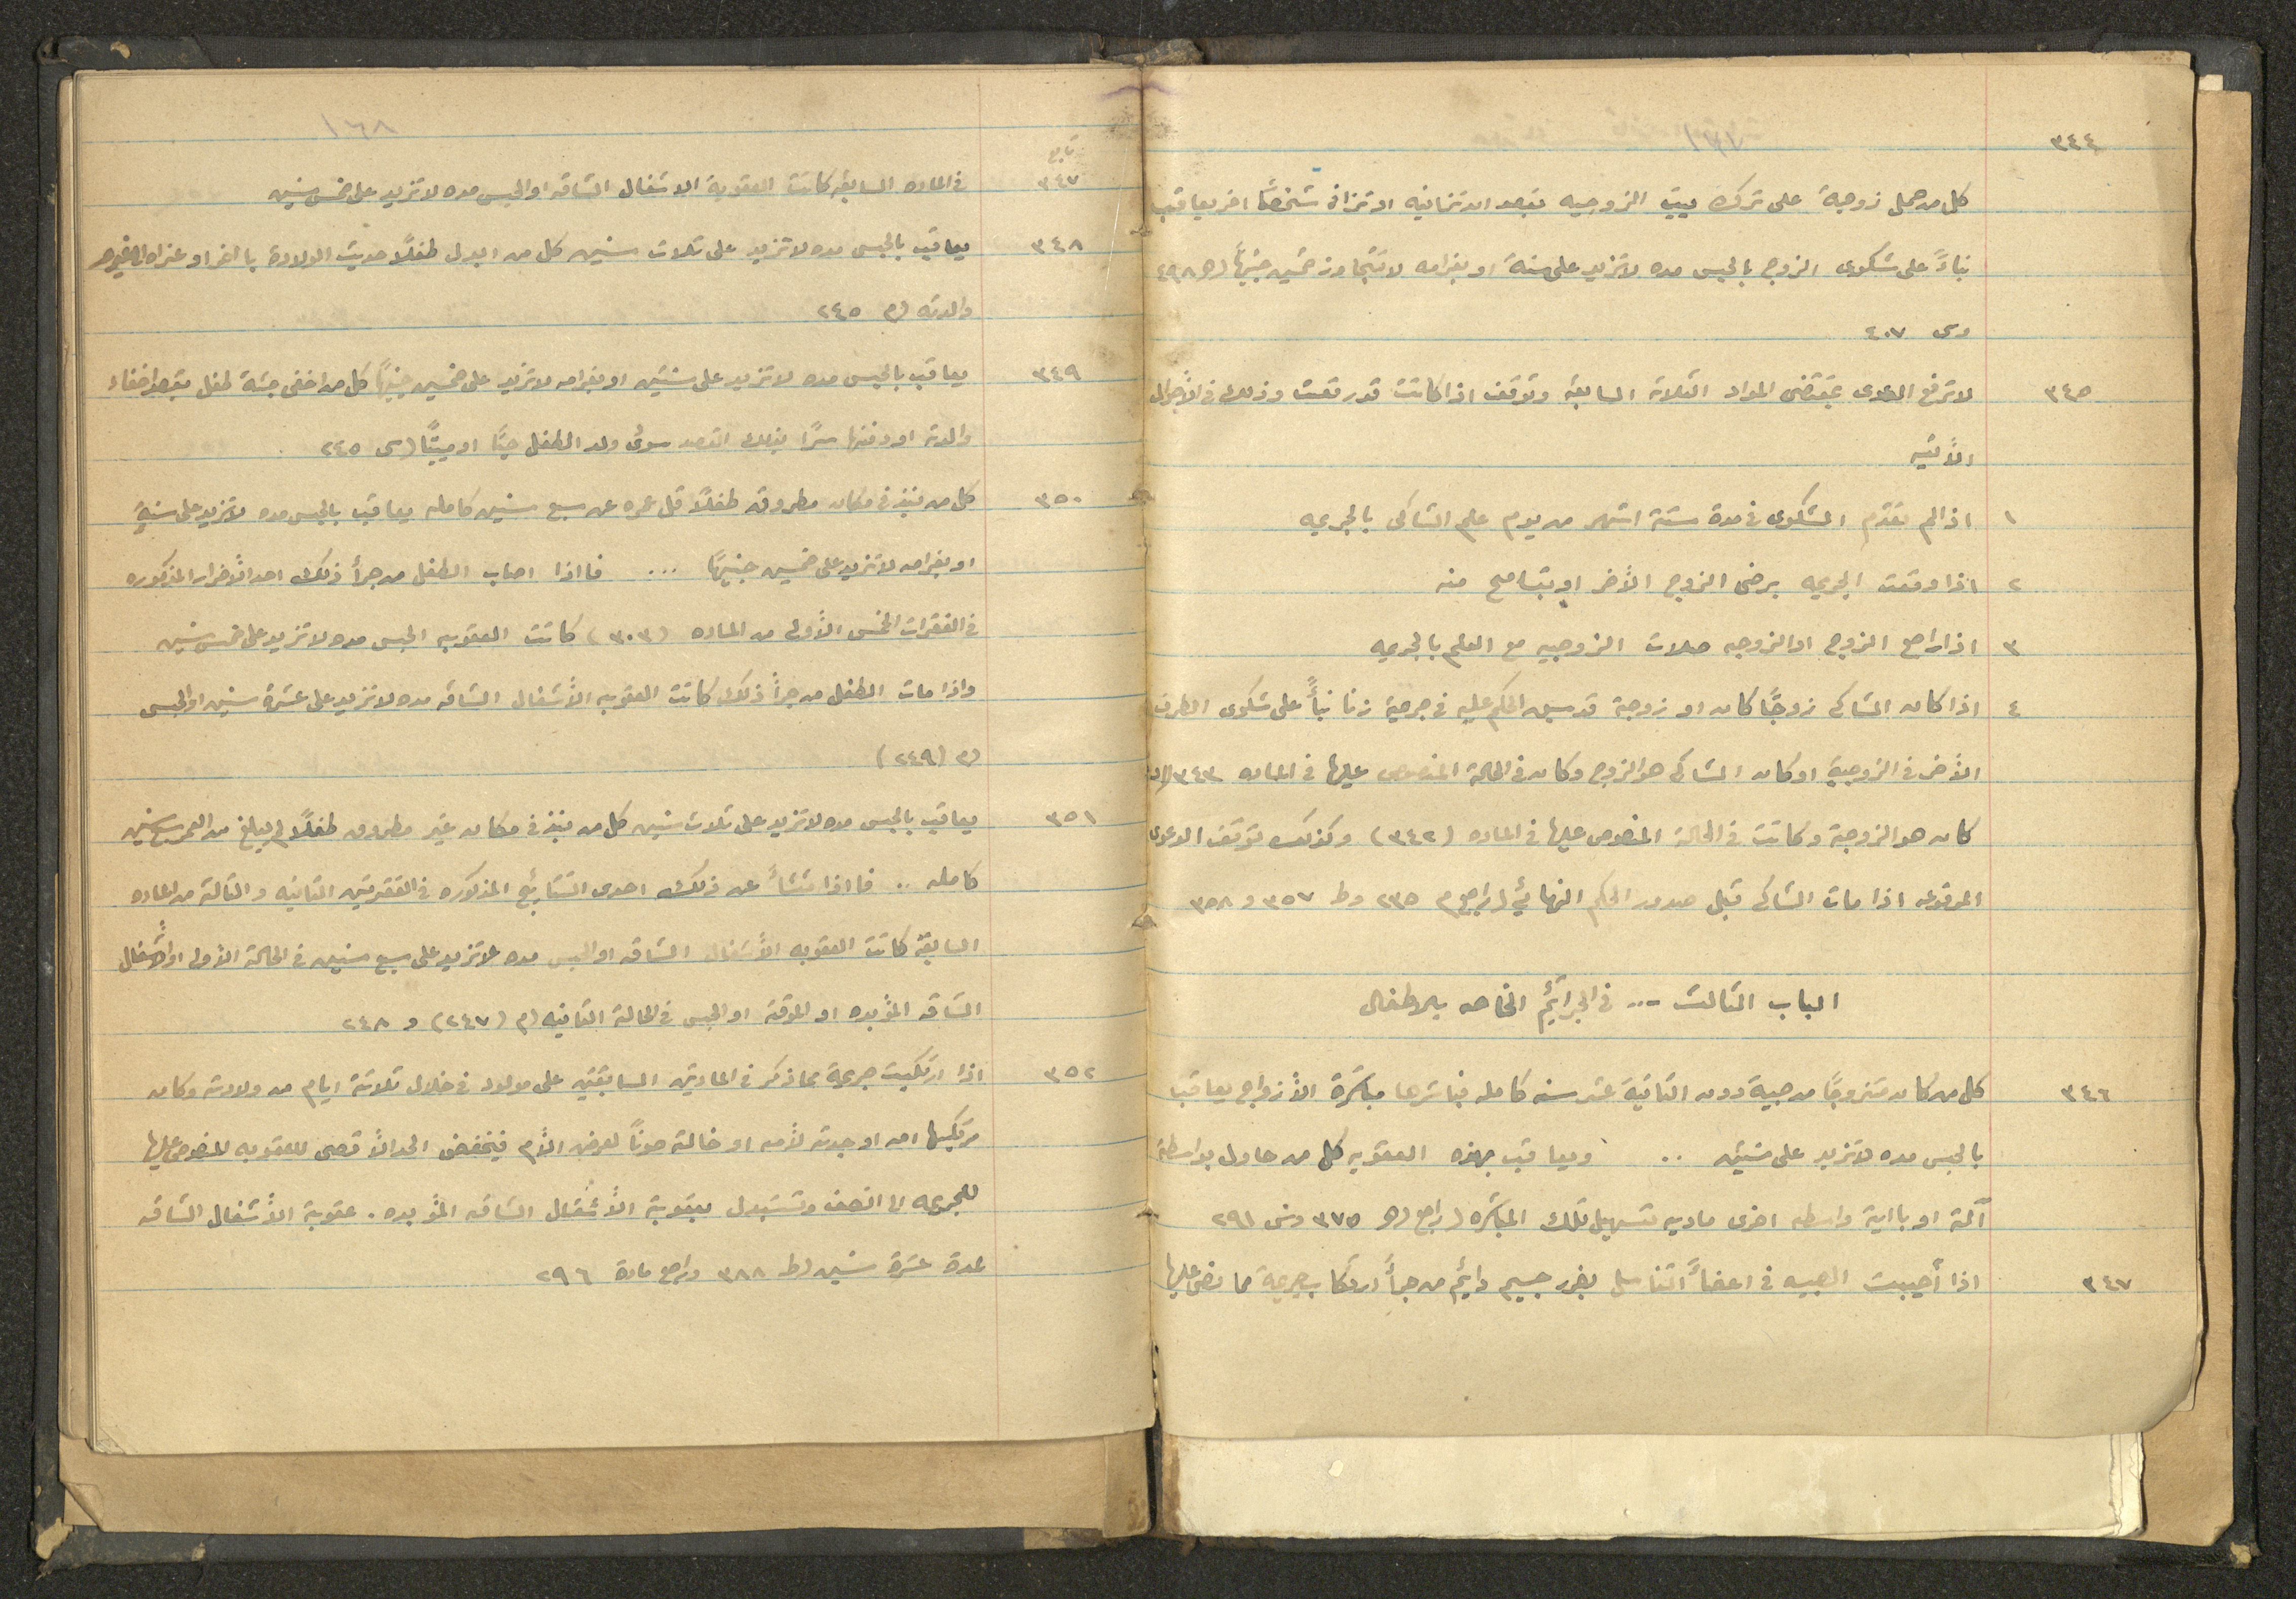 ١٦٧
٣٤٤
كل من حمل زوجة على ترك بيت الزوجيه بقصد ان تزانيه او تزانى شخصًا اخر يعاقب
بناءً على شكوى الزوج بالحبس مده لا تزيد على سنة او بغرامه لا تتجاوز خمسين جنيهًا (هـ ٤٩٨
وس ٤٠٧
٣٤٥ لا ترفع الدعوى بمقتضى المواد الثلاثة السابقه وتوقف اذا كانت قد رفعت وذلك في الأحوال
الأتيه
١ اذا لم تقدم الشكوى في مدة ستة اشهر من يوم علم الشاكى بالجريمه
٢ اذا وقعت الجريمه برضى الزوج الأخر او بتسامح منه
٣ اذا راجع الزوج او الزوجه صلات الزوجيه مع العلم بالجريمه
٤ اذا كان الشاكى زوجًا كان او زوجة قد سبق الحكم عليه في جريمة زنا بنأً على شكوى الطرف
الأخر في الزوجية او كان الشاكى هو الزوج وكان في الحالة المنصوص عليها في الماده ٣٤٣
كان هو الزوجة وكانت في الحالة المنصوص عليها في الماده (٣٤٢) وكذلك توقف الدعوى
المرفوعه اذا مات الشاكى قبل صدور الحكم النهائي (راجع م ٢٣٥ وط ٣٥٧ و ٣٥٨
الباب الثالث -.. في الجرائم الخاصه بالاطفال
٣٤٦ كل من كان متزوجًا من صبية دون الثانية عشر سنه كامله فباشرها مباشرة الأزواج يعاقب
بالحبس مده لا تزيد على سنتين .. ويعاقب بهذه العقوبه كل من حاول بواسطة
آلة او باية واسطه اخرى ماديه تسهيل تلك المباشره (راجع (هـ ٣٧٥ وس ٢٩١
٣٤٧ اذا أصيبت الصبيه في اعضأ التناسل بضرر جسيم دائم من جرأ ارتكاب جريمة مما نص عليها
١٦٨
تابع
٣٤٧ في الماده السابقه كانت العقوبة الاشغال الشاقه او الحبس مده لا تزيد على خمس سنين
٣٤٨ يعاقب بالحبس مده لا تزيد على ثلاث سنين كل من ابدل طفلًا حديث الولادة باخر او عزاه الى غير
والدته (م ٢٤٥
٣٤٩ يعاقب بالحبس مده لا تزيد على سنتين او بغرامه لا تزيد على خمسين جنيهًا كل من اخفى جثة طفل بقصد اخفاء
ولادته او دفنها سرًا بذلك القصد سواء ولد الطفل حيًا او ميتًا (س ٢٤٥
٣٥٠ كل من نبذ في مكان مطروق طفلًا قل عمره عن سبع سنين كامله يعاقب بالحبس مده لا تزيد على سنة
او بغرامه لا تزيد على خمسين جنيهًا ... فاذا اصاب الطفل من جرأ ذلك احد الأضرار المذكوره
في الفقرات الخمس الأولى من الماده (٣٠٣) كانت العقوبه الحبس مده لا تزيد على خمس سنين
واذا مات الطفل من جرأ ذلك كانت العقوبه الأشغال الشاقه مده لا تزيد على عشرة سنين او الحبس
(م (٢٤٩)
٣٥١ يعاقب بالحبس مده لا تزيد على ثلاث سنين كل من نبذ في مكان غير مطروق طفلًا لم يبلغ من العمر سبع سنين
كامله .. فاذا نشأ عن ذلك احدى النتائج المذكوره في الفقرتين الثانيه والثالثة من الماده
السابقة كانت العقوبه الأشغال الشاقه او الحبس مده لا تزيد على سبع سنين في الحالة الأولى او الأشغال
الشاقه المؤبده او المؤقته او الحبس في الحالة الثانيه (م (٢٤٧) و ٢٤٨
٣٥٢ اذا ارتكبت جريمة مما ذكر في المادتين السابقتين على مولود في خلال ثلاثة ايام من ولادته وكان
مرتكبها امه او جدته لأمه او خالته صونًا لعرض الأم فيخفض الحد الأقصى للعقوبه المنصوص عليها
للجريمه الى النصف وتستبدل بعقوبة الأشغال الشاقه المؤبده . عقوبة الأشغال الشاقه
لمدة عشرة سنين (ط ٣٨٨ وراجع مادة ٢٩٦